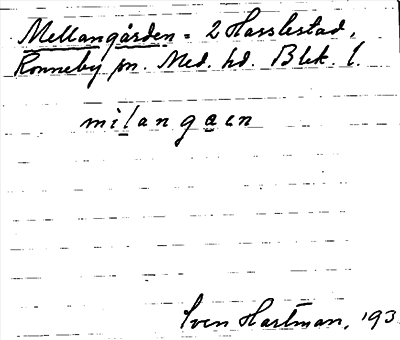 Mellangården = 2 Hasslestad,
Ronneby sn. Med. hd. Blek. l.
milangaen
Sven Hartman, '93